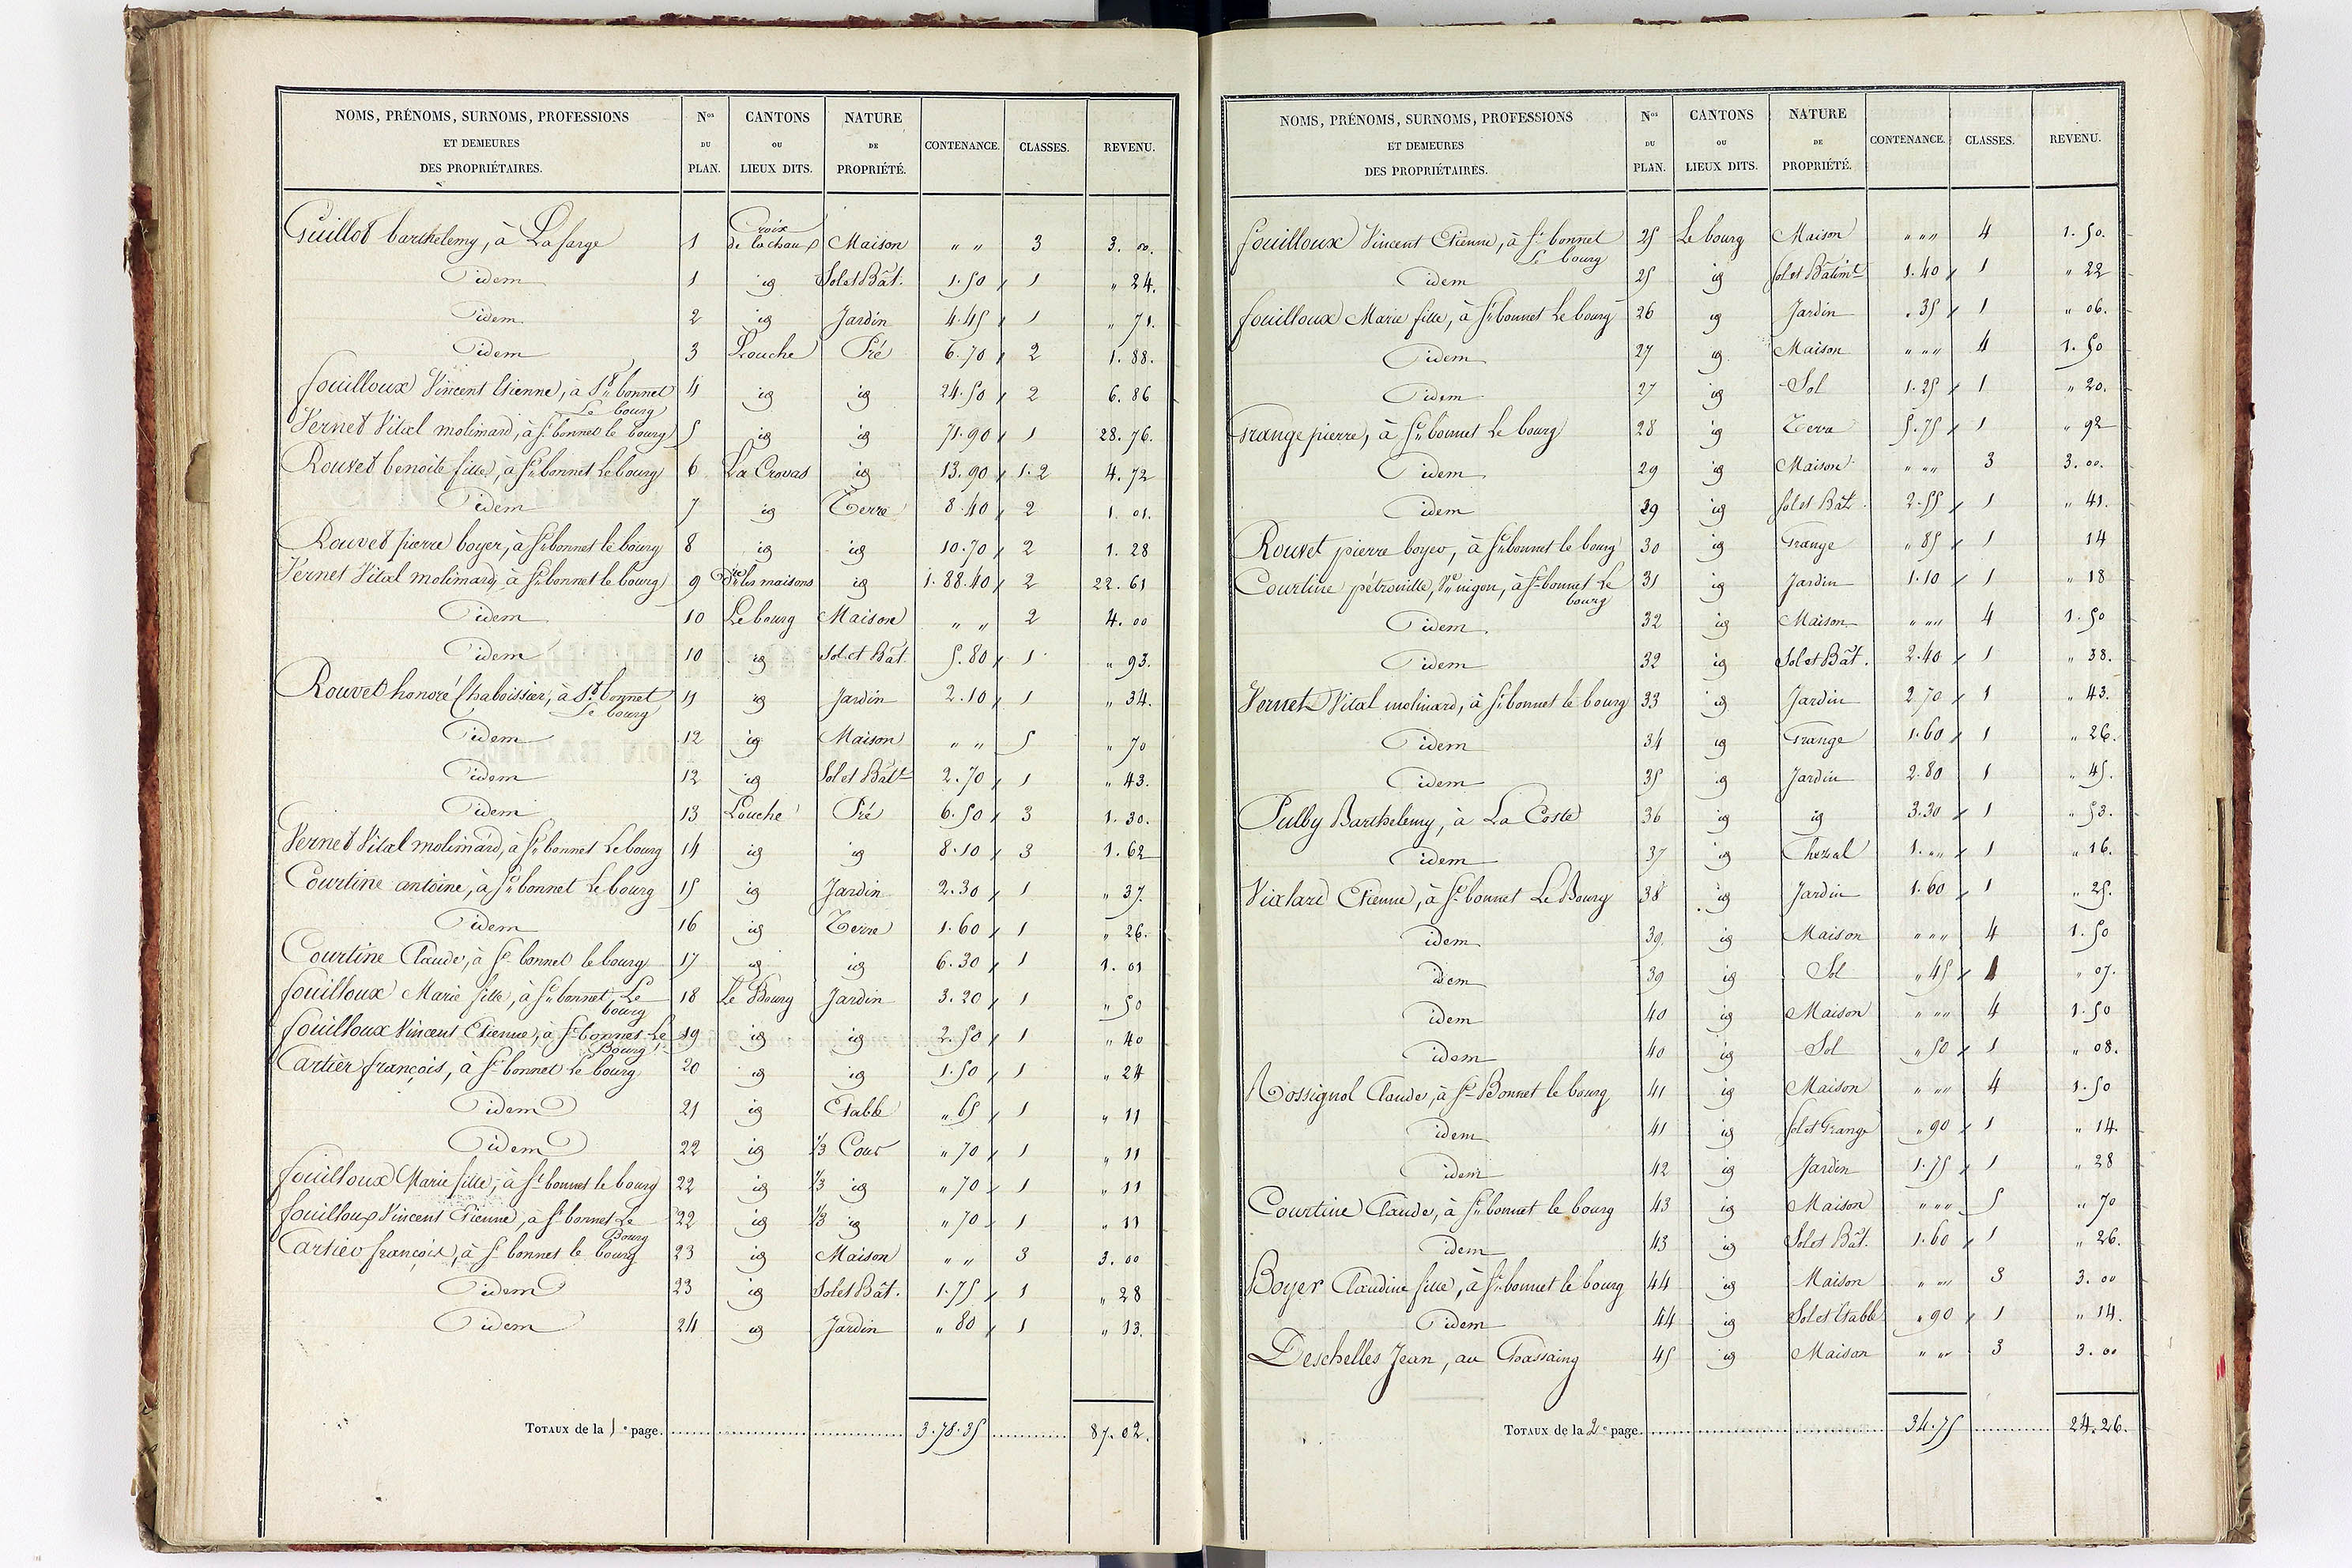 NOMS, PRÉNOMS, SURNOMS, PROFESSIONS ET DEMEURES DES PROPRIÉTAIRES. Nos DU PLAN. CANTONS OU LIEUX DITS. NATURE DE PROPRIÉTÉ. CONTENANCE. CLASSES. REVENU.
Guillot barthelemy, à Lafarge 1 Croix de lachaux Maison " " 3 3. 00.
idem 1 id Sol et Bât. 1.50 1 " 24.
idem 2 id Jardin 4.45 1 " 71.
idem 3 Louche Pré 6.70 2 1. 88.
fouilloux Vincent Etienne, à St bonnet Le bourg 4 id id 24.50 2 6. 86
Vernet Vital molimard, à St bonnet le bourg 5 id id 71.90 1 28. 76.
Rouvet benoite fille, à St bonnet Le bourg 6 La Crovas id 13.90 1.2 4. 72
idem 7 id Terre 8.40 2 1. 01.
Rouvet pierre boyer, à St bonnet le bourg 8 id id 10.70 2 1. 28
Vernet Vital molimard, à St bonnet le bourg 9 les maisons id 1.88.40 2 22. 61
idem 10 Le bourg Maison " " 2 4. 00
idem 10 id Sol et Bât. 5.80 1 " 93.
Rouvet honoré Chaboissier, à St bonnet Le bourg 11 id Jardin 2.10 1 " 34.
idem 12 id Maison " " 5 " 70
idem 12 id Sol et Bâtt 2.70 1 " 43.
idem 13 Louche Pré 6.50 3 1. 30.
Vernet Vital molimard, à St bonnet Le bourg 14 id id 8.10 3 1. 62
Courtine antoine, à St bonnet Le bourg 15 id Jardin 2.30 1 " 37.
idem 16 id Terre 1.60 1 " 26.
Courtine Claude, à St bonnet le bourg 17 id id 6.30 1 1. 01
fouilloux Marie fille, à St bonnet Le bourg 18 Le Bourg Jardin 3.20 1 " 50
fouilloux Vincent Etienne, à St bonnet Le Bourg 19 id id 2.50 1 " 40
Cartier françois, à St bonnet Le bourg 20 id id 1.50 1 " 24
idem 21 id Etable " 65 1 " 11
idem 22 id 1/3 Cour " 70 1 " 11
fouilloux Marie fille, à St bonnet le bourg 22 id 1/3 id " 70 1 " 11
fouilloux Vincent Etienne, à St bonnet Le Bourg 22 id 1/3 id " 70 1 " 11
Cartier françois, à St bonnet le bourg 23 id Maison " " 3 3. 00
idem 23 id Sol et Bât. 1.75 1 " 28
idem 24 id Jardin " 80 1 " 13.
TOTAUX de la 1e page. 3.78.35 87.02.
NOMS, PRÉNOMS, SURNOMS, PROFESSIONS ET DEMEURES DES PROPRIÉTAIRES. Nos DU PLAN. CANTONS OU LIEUX DITS. NATURE DE PROPRIÉTÉ. CONTENANCE. CLASSES. REVENU.
fouilloux Vincent Etienne, à St bonnet Le bourg 25 Le bourg Maison " " " 4 1. 50.
idem 25 id Sol et Bâtimt 1.40 1 " 22
fouilloux Marie fille, à St bonnet Le bourg 26 id Jardin " 35 1 " 06.
idem 27 id Maison " " " 4 1. 50
idem 27 id Sol 1.25 1 " 20.
Grange pierre, à St bonnet Le bourg 28 id Terre 5.75 1 " 92
idem 29 id Maison " " " 3 3. 00.
idem 29 id Sol et Bât. 2.55 1 " 41.
Rouvet pierre boyer, à St bonnet le bourg 30 id Grange " 85 1 14
Courtine pétronille, Ve nigon, à St bonnet Le bourg 31 id Jardin 1.10 1 " 18
idem 32 id Maison " " " 4 1. 50
idem 32 id Sol et Bât. 2.40 1 " 38.
Vernet Vital molimard, à St bonnet le bourg 33 id Jardin 2.70 1 " 43.
idem 34 id Grange 1.60 1 " 26.
idem 35 id Jardin 2.80 1 " 45.
Pulby Barthelemy, à La Coste 36 id id 3.30 1 " 53.
idem 37 id Chezal 1. " " 1 " 16.
Vialard Etienne, à St bonnet Le Bourg 38 id Jardin 1.60 1 " 25.
idem 39 id Maison " " " 4 1. 50
idem 39 id Sol " 45 1 " 07.
idem 40 id Maison " " " 4 1. 50
idem 40 id Sol " 50 1 " 08.
Rossignol Claude, à St Bonnet le bourg 41 id Maison " " " 4 1. 50
idem 41 id Sol et Grange " 90 1 " 14.
idem 42 id Jardin 1.75 1 " 28
Courtine Claude, à St bonnet le bourg 43 id Maison " " " 5 " 70
idem 43 id Sol et Bât. 1.60 1 " 26.
Boyer Claudine fille, à St bonnet le bourg 44 id Maison " " " 3 3. 00
idem 44 id Sol et Etable " 90 1 " 14.
Deschelles Jean, au Chassaing 45 id Maison " " " 3 3. 00
TOTAUX de la 2e page. 34.75 24.26.